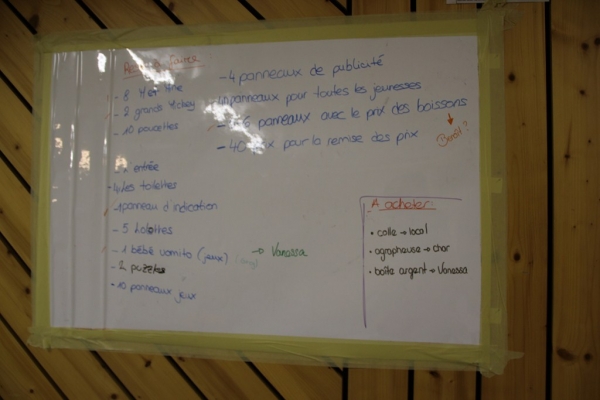 à faire
- 8
- 2 grands Mickey
- 10 poucettes
entrée
les toilettes
- 1 panneau d'indication
- 5 holottes
- 1 bébé vomito (jeux) → Vanessa
- 2 puzzles
- 10 panneaux jeux
- 4 panneaux de publicité
panneaux pour toutes les jeunesses
panneaux avec le prix des boissons
- 40 prix pour la remise des prix
A acheter:
• colle → local
• agrapheuse → char
• boîte argent → Vanessa